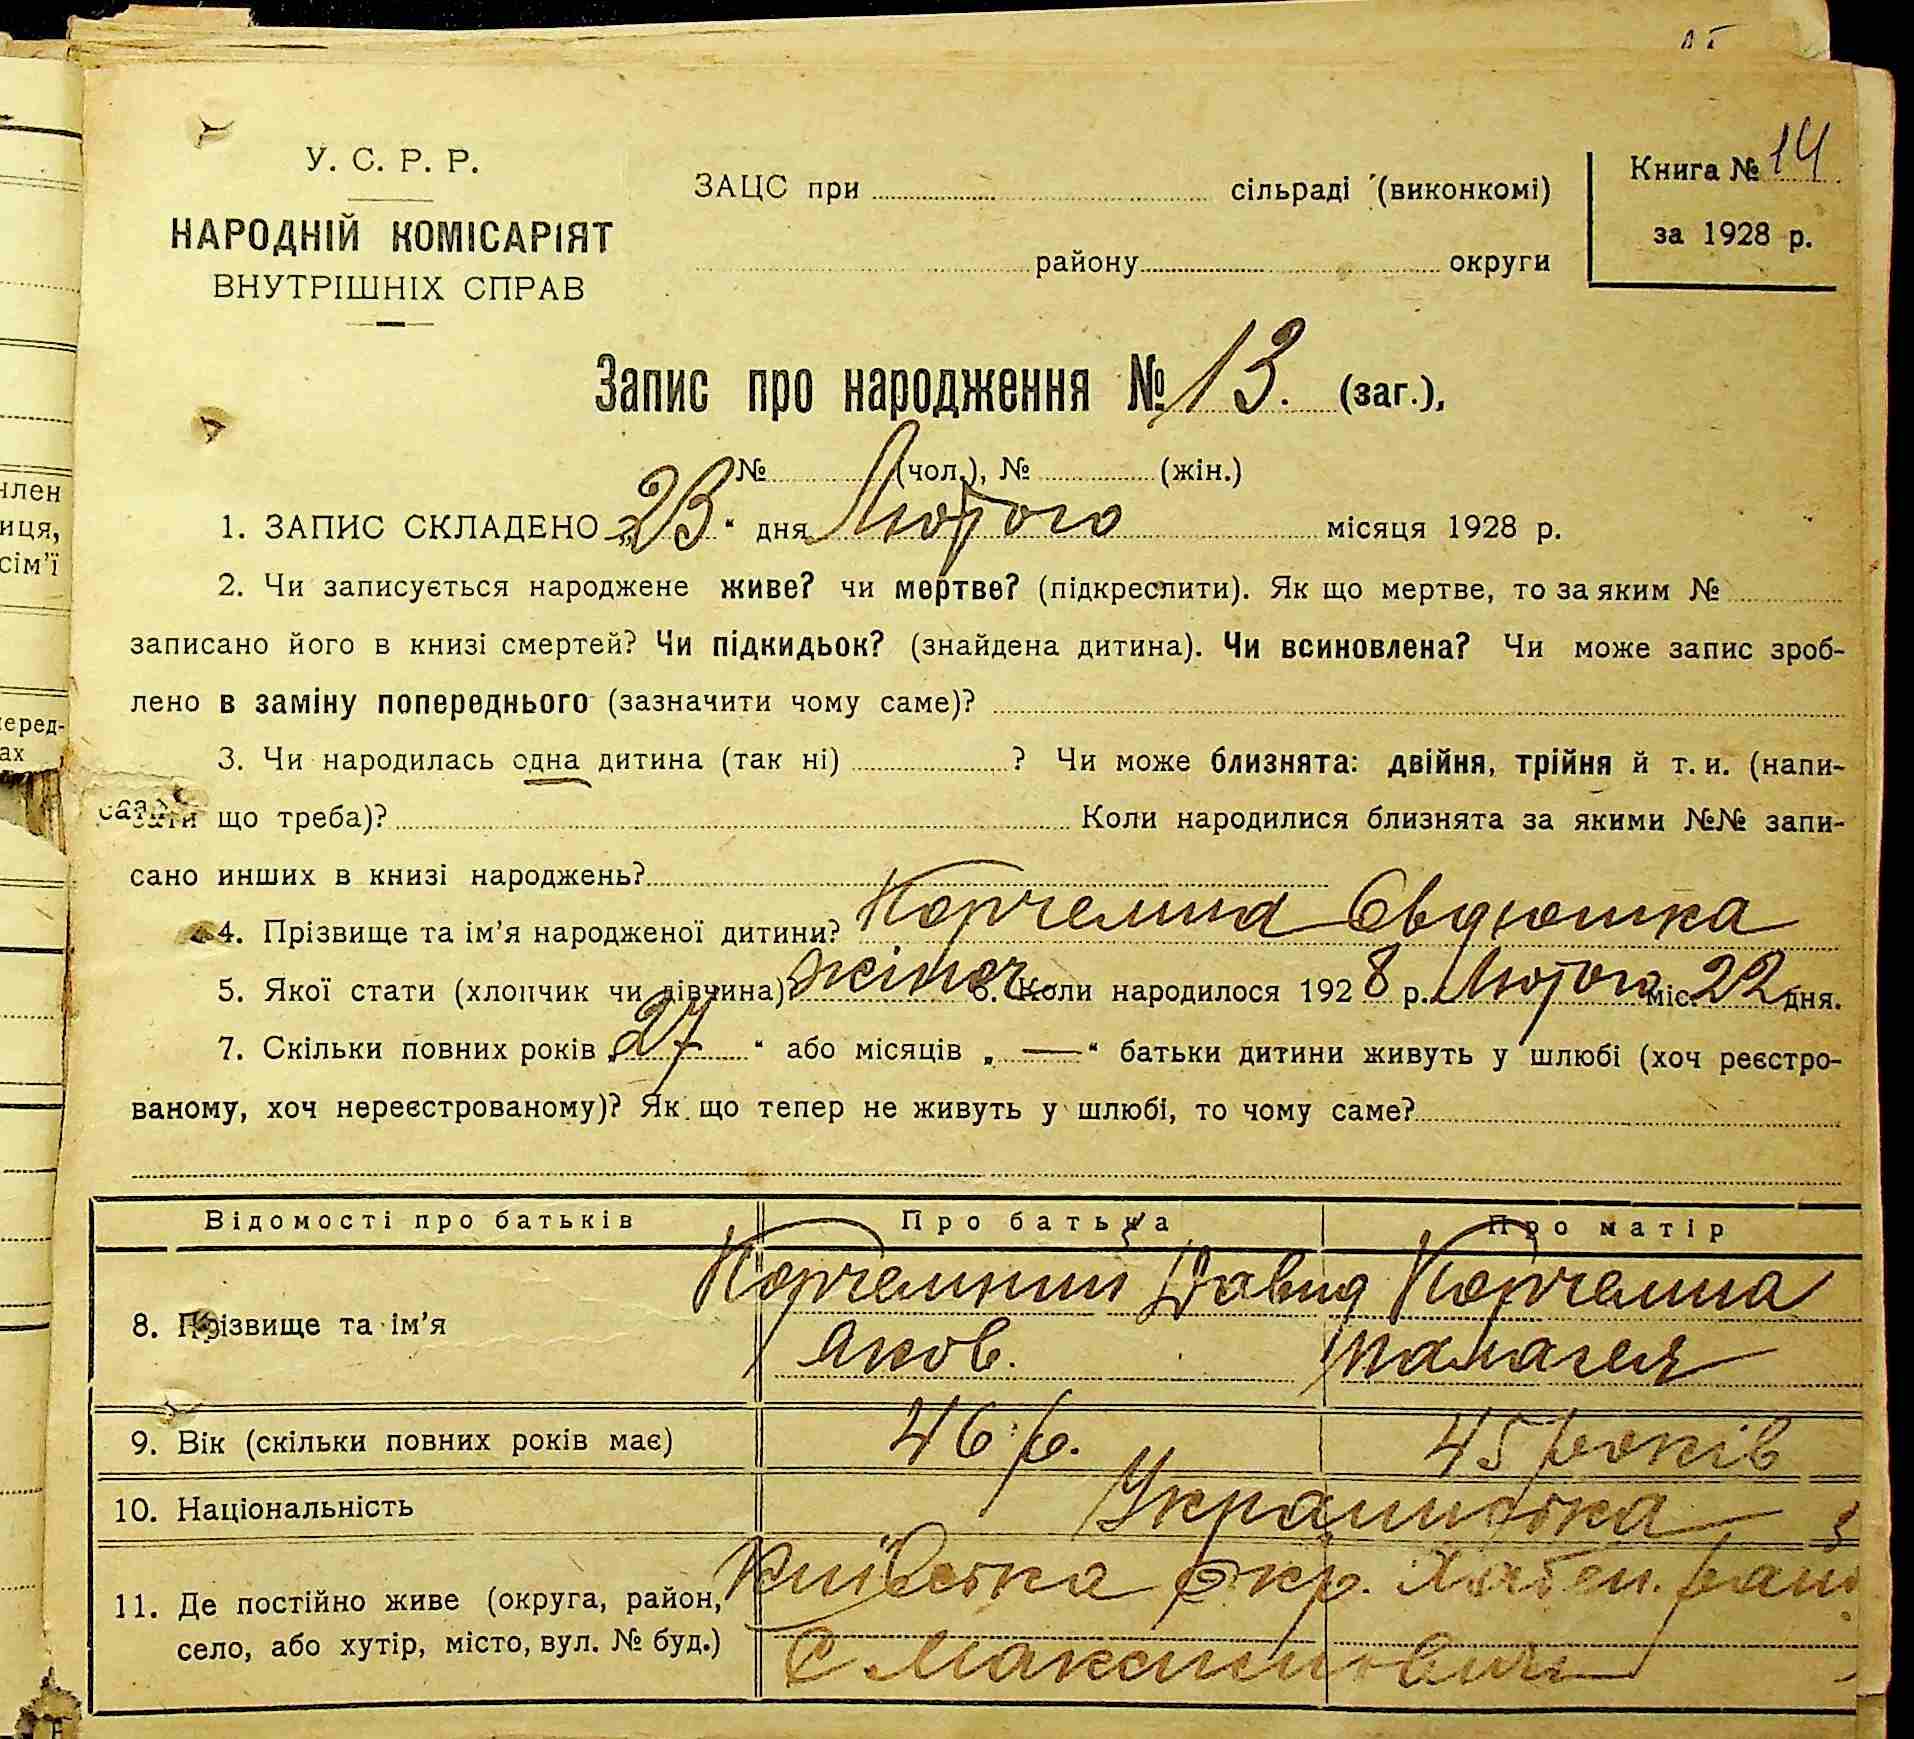 У. С. Р. Р.
НАРОДНІЙ КОМІСАРІЯТ
ВНУТРІШНІХ СПРАВ
ЗАЦС при сільраді (виконкомі)
району округи
Книга № 14
за 1928 р.
Запис про народження № 13. (заг.),
№ (чол.), № (жін.)
1. ЗАПИС СКЛАДЕНО „23“ дня Лютого місяця 1928 р.
2. Чи записується народжене живе? чи мертве? (підкреслити). Як що мертве, то за яким №
записано його в книзі смертей? Чи підкидьок? (знайдена дитина). Чи всиновлена? Чи може запис зроб-
лено в заміну попереднього (зазначити чому саме)?
3. Чи народилась одна дитина (так ні) ? Чи може близнята: двійня, трійня й т. и. (напи-
сати що треба)? Коли народилися близнята за якими №№ запи-
сано инших в книзі народжень?
4. Прізвище та ім’я народженої дитини? Корчемна Євдюшка
5. Якої стати (хлопчик чи дівчина) жіноч. 6. Коли народилося 1928 р. Лютого міс. 22 дня.
7. Скільки повних років „27“ або місяців „—“ батьки дитини живуть у шлюбі (хоч реєстро-
ваному, хоч нереєстрованому)? Як що тепер не живуть у шлюбі, то чому саме?
Відомості про батьків Про батька Про матір
8. Прізвище та ім’я Корчемний Давид Яков. Корчемна Палагея
9. Вік (скільки повних років має) 46 р. 45 років
10. Національність Українська
11. Де постійно живе (округа, район, Київська окр. Хабен. рай
село, або хутір, місто, вул. № буд.) С Максимовичі
член
иця,
сім’ї
перед-
ах